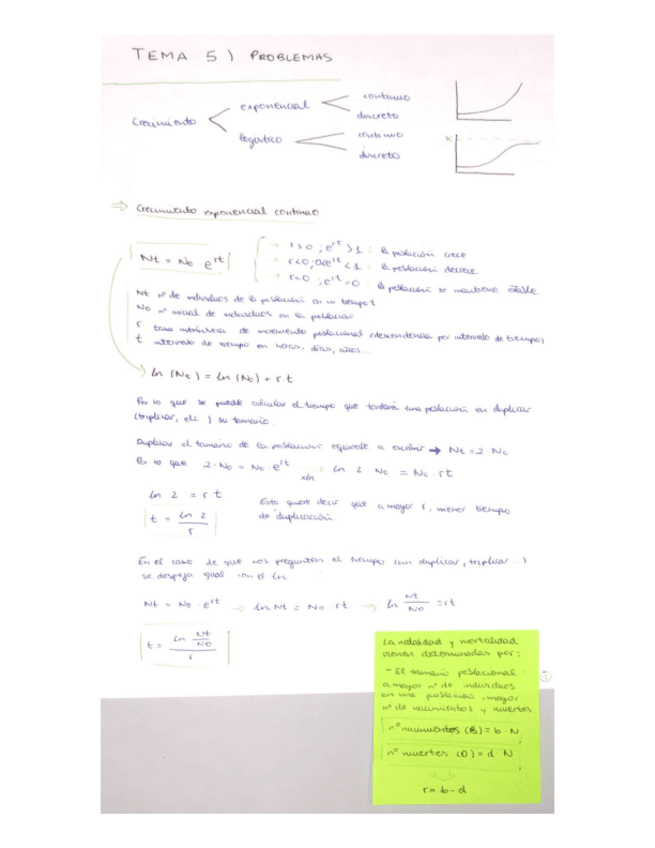 TEMA 5) PROBLEMAS
Crecimiento
exponencial
continuo
discreto
logístico
continuo
discreto
K
⇒ Crecimiento exponencial continuo
Nt = No · e^rt
→ r>0 ; e^rt > 1 : la población crece
→ r<0 ; 0<e^rt < 1 : la población decrece
→ r=0 ; e^rt = 0 : la población se mantiene estable
Nt nº de individuos de la población en un tiempo t
No nº inicial de individuos en la población
r tasa intrínseca de incremento poblacional (descendencia por intervalo de tiempo)
t intervalo de tiempo en horas, días, años...
ln (Nt) = ln (No) + r t
Por lo que se puede calcular el tiempo que tardará una población en duplicar
(triplicar, etc ) su tamaño.
Duplicar el tamaño de la población equivale a escribir → Nt = 2 · No
Por lo que 2 · No = No · e^rt → ln 2 No = No rt
xln
ln 2 = r t
t = ln 2 / r
Esto quiere decir que a mayor r, menor tiempo
de duplicación
En el caso de que nos pregunten el tiempo (sin duplicar, triplicar...)
se despeja igual con el ln.
Nt = No · e^rt → ln Nt = No · rt → ln Nt/No = rt
t = ln Nt/No / r
La natalidad y mortalidad
vienen determinadas por:
- El tamaño poblacional:
a mayor nº de individuos
en una población, mayor
nº de nacimientos y muertes
nº nacimientos (B) = b · N
nº muertes (D) = d · N
r = b - d
1